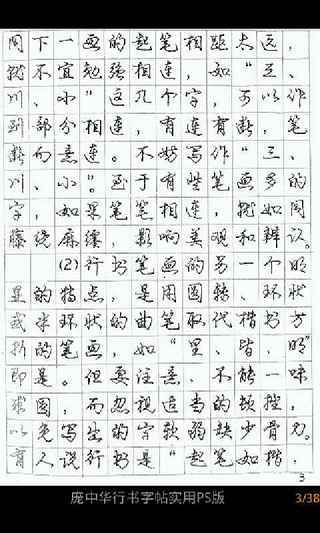 同下一画的起笔相距太远，
就不宜勉强相连，如“三、
川、小”这几个字，可以作
到部分相连，有连有断，笔
断而意连。不妨写作“三、
川、小”。至于有些笔画多的
字，如果笔笔相连，就如同
藤绕麻缠，影响美观和辨认。
(2)行书笔画的另一个明
显的特点，是用圆转、环状
或半环状的曲笔取代楷书方
折的笔画，如“里、皆、明”
即是。但要注意，不能一味
求圆，而忽视适当的顿挫，
以免写出的字软弱缺少骨力。
有人说行书是“起笔如楷，
3
庞中华行书字帖实用PS版
3/38